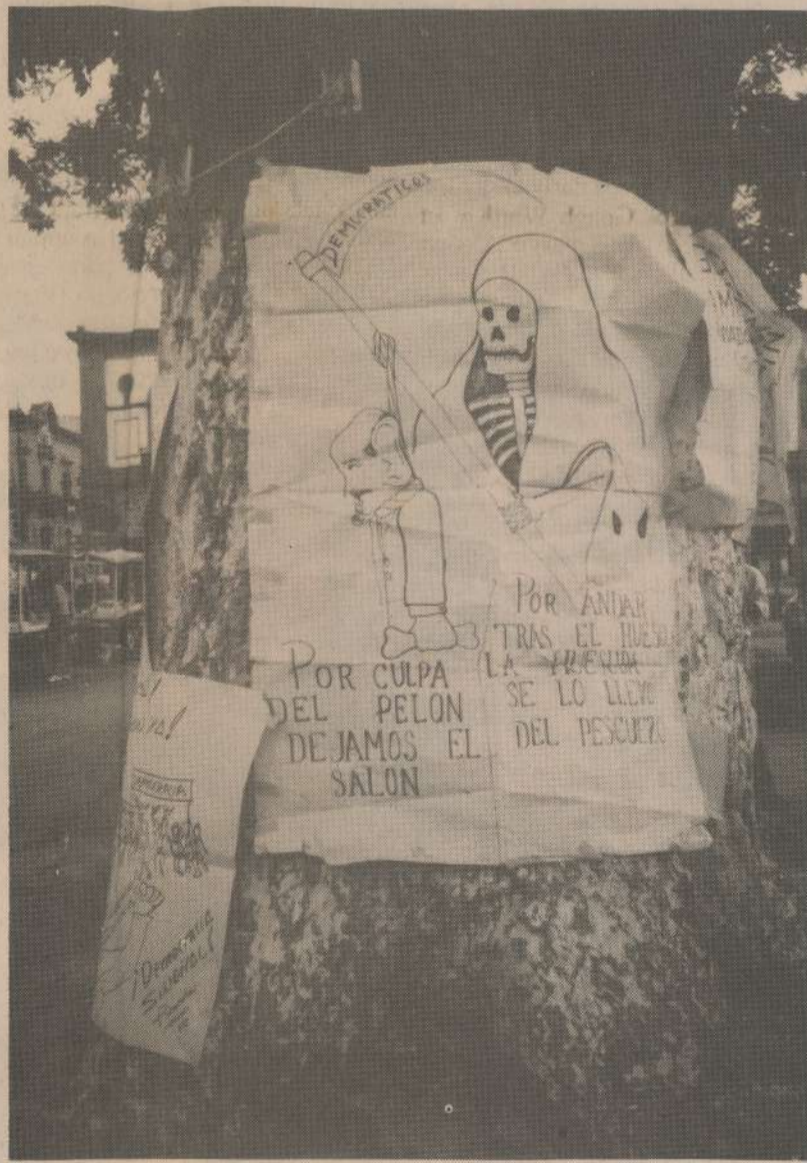 DEMOCRATICOS
POR CULPA
DEL PELON
DEJAMOS EL
SALON
POR ANDAR
TRAS EL HUESO
LA
SE LO LLEVO
DEL PESCUEZO
¡Democracia
Sindical!